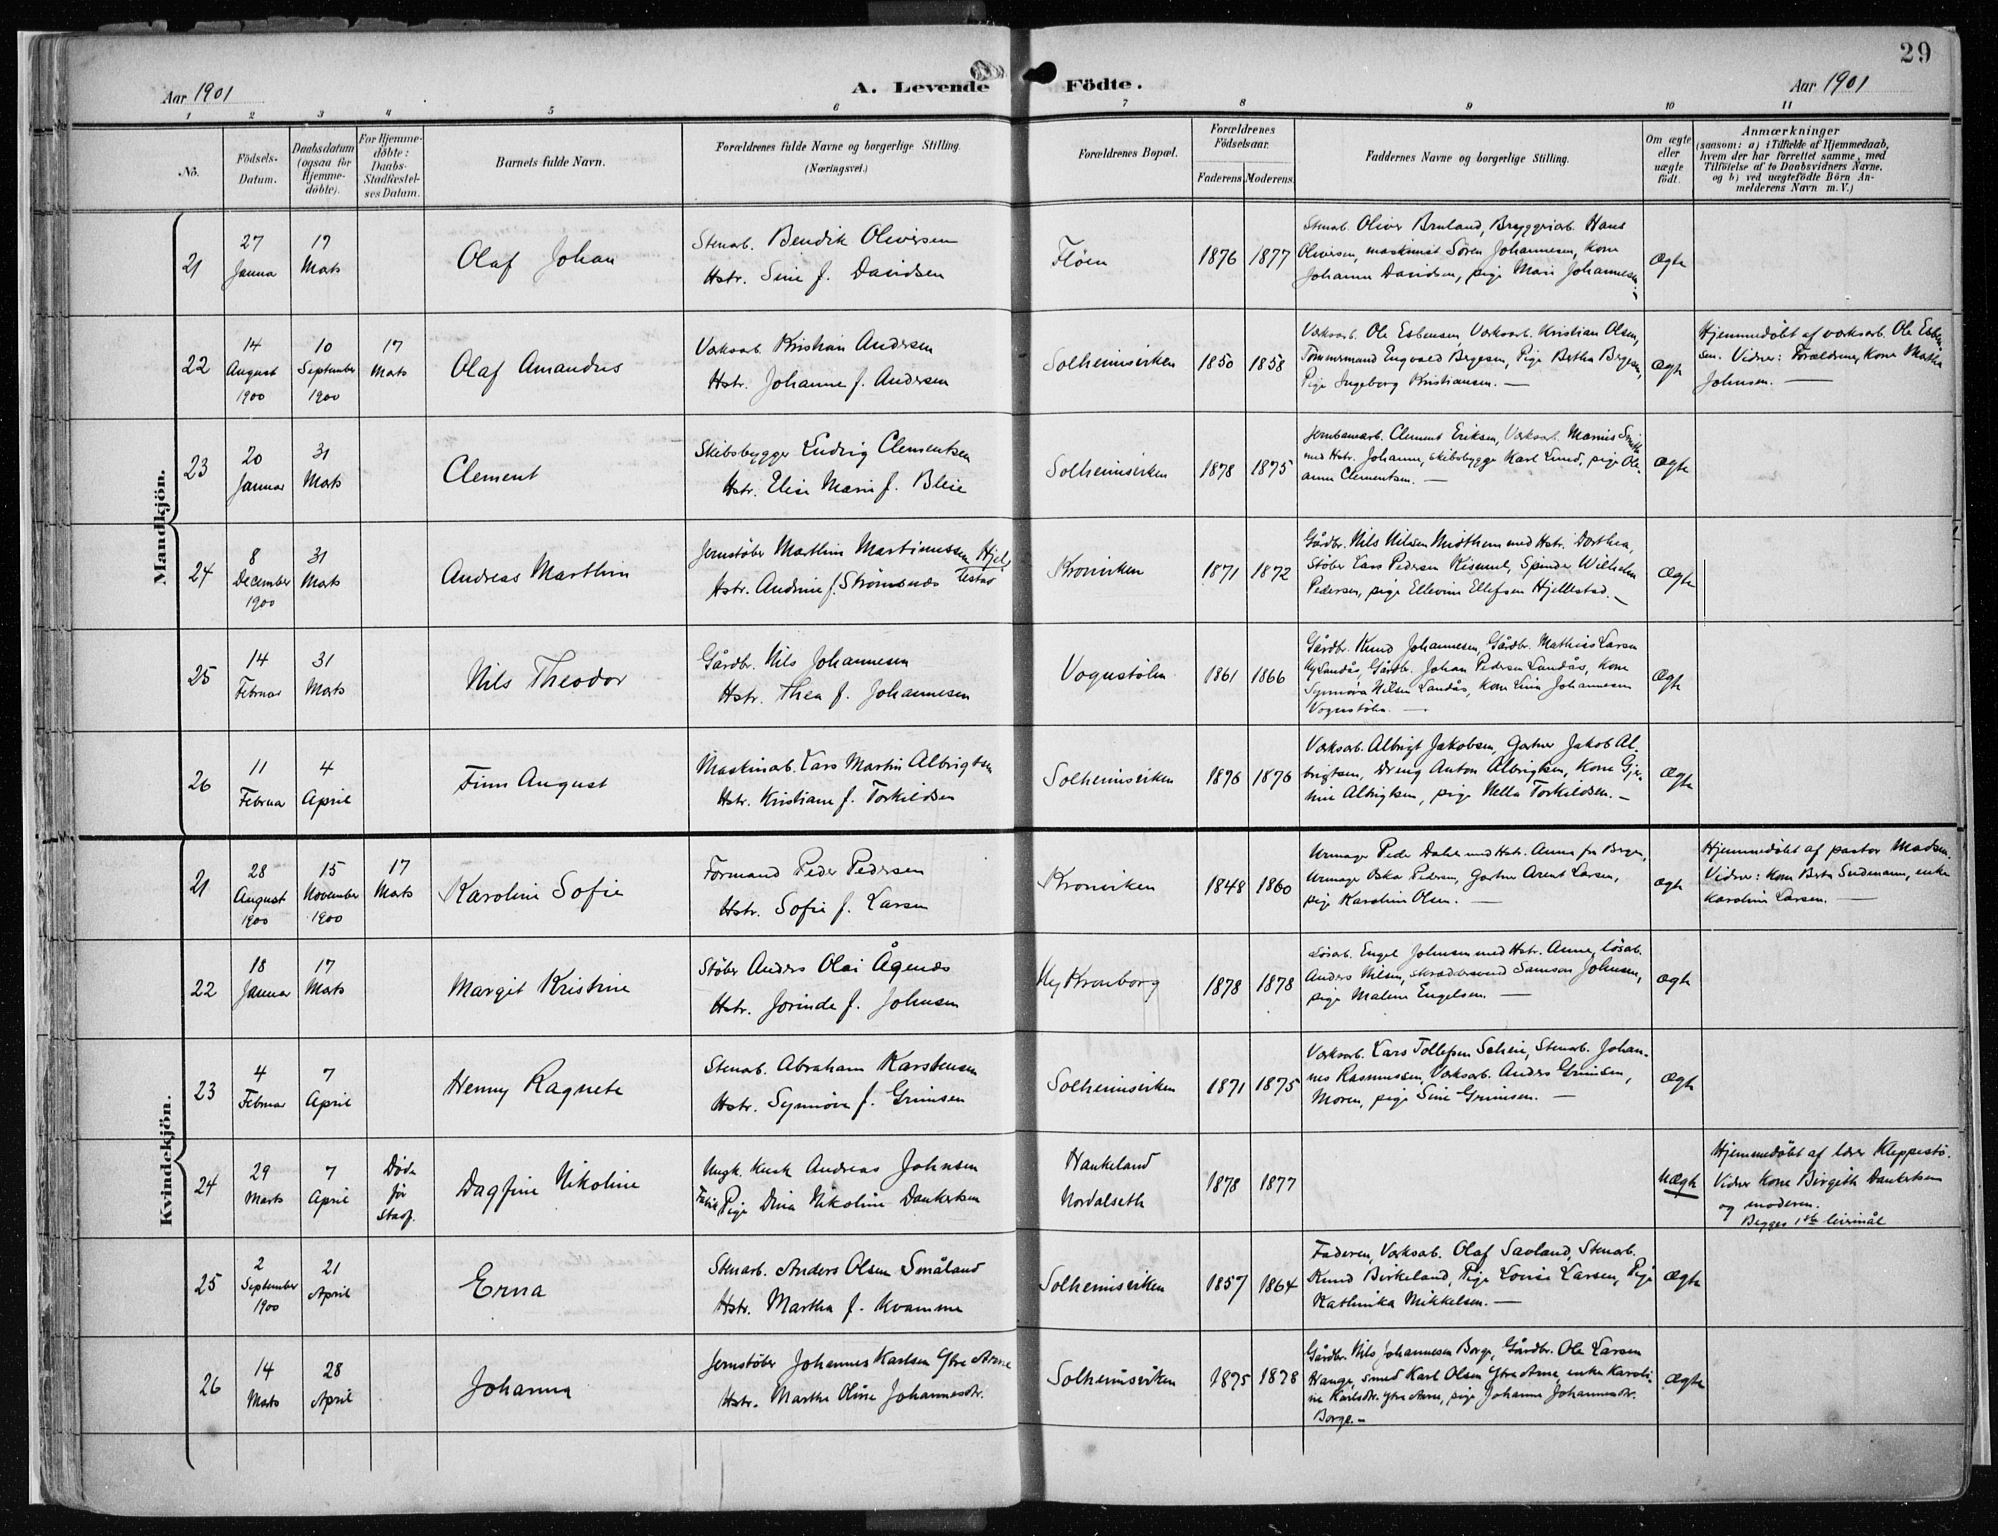 29
Aar 1901
A. Levende Födte.
Aar 1901
1 2 3 4 5 6 7 8 9 10 11
No.
Födsels-
Datum.
Daabsdatum
(ogsaa for
Hjemme-
döbte).
For Hjemme-
döbte:
Daabs-
Stadfæstel-
ses Datum.
Barnets fulde Navn.
Forældrenes fulde Navne og borgerlige Stilling.
(Næringsvei.)
Forældrenes Bopæl.
Forældrenes
Födselsaar.
Faderens Moderens
Faddernes Navne og borgerlige Stilling.
Om ægte
eller
uægte
født.
Anmærkninger
(saasom: a) i Tilfælde af Hjemmedaab,
hvem der har forrettet samme, med
Tilföielse af to Daabsvidners Navne,
og b) ved uægtefödte Börn An-
melderens Navn m. V.)
Mandkjön.
21
27
Januar
17
Mars
Olaf Johan
Stenarb. Bendik Oliversen
Hstr. Sine f. Davidsen
Fløen
1876 1877
Stenarb. Oliver Bruland, Bryggeriarb. Hans
Oliversen, maskinist Søren Johannesen, Kone
Johanne Davidsen, pige Marie Johannesen
Ægte
22
14
August
1900
10
September
1900
17
Mars
Olaf Amandus
Værksarb. Kristian Andersen
Hstr. Johanne f. Andersen
Solheimsviken
1850 1858
Værksarb. Ole Esbensen, Værksarb. Kristian Olsen,
Tømmermand Engvald Bergesen, Pige Bertha Bergesen,
Pige Ingeborg Kristiansen. —
Ægte
Hjemmedøbt af værksarb. Ole Esben
sen. Vidner: Forældrene, Kone Mathea
Johnsen. —
23
20
Januar
31
Mars
Clement
Skibsbygger Ludvig Clementsen
Hstr. Elise Marie f. Bleie
Solheimsviken
1878 1875
Jernbanearb. Clement Eriksen, Værksarb. Marius
med Hstr. Johanne, skibsbygge Karl Lund, pige Ole-
anna Clementsen. —
Ægte
24
8
December
1900
31
Mars
Andreas Marthin
Jernstøber Mathin Martinussen Hjel-
lestad
Hstr. Andrine f. Strømsnæs
Kronviken
1871 1872
Gårdbr. Nils Nilsen Midthun med Hstr. Dorthea,
Støber Lars Pedersen, Spinder Wilhelm
Pedersen, pige Ellevine Ellefsen Hjellestad. —
Ægte
25
14
Februar
31
Mars
Nils Theodor
Gårdbr. Nils Johannesen
Hstr. Thea f. Johannesen
Vognstølen
1861 1866
Gårdbr. Knud Johannesen, Gårdbr. Mathias Larsen
Landås, Gårdbr. Johan Pedersen Landås, Kone
Synnøva Nilsen Landås, Kone Lina Johannesen
Vognstølen. —
Ægte
26
11
Februar
4
April
Finn August
Maskinarb. Lars Martin Albrigtsen
Hstr. Kristiane f. Torkildsen
Solheimsviken
1876 1876
Værksarb. Albrigt Jakobsen, Gartner Jakob Al-
brigtsen, Dreng Anton Albrigtsen, Kone Gje-
rtine Albrigtsen, pige Nella Torkildsen. —
Ægte
Kvindekjön.
21
28
August
1900
15
November
1900
17
Mars
Karoline Sofie
Formand Peder Pedersen
Hstr. Sofie f. Larsen
Kronviken
1848 1860
Urmager Peder Dahle med Hstr. Anna fra Bergen,
Urmager Oskar Pedersen, Gartner Arent Larsen,
pige Karoline Olsen. —
Ægte
Hjemmedøbt af pastor Madsen.
Vidner: Kone Berte Sudmann, enke
Karoline Larsen. —
22
18
Januar
17
Mars
Margit Kristine
Støber Anders Olai Ågenæs
Hstr. Jorinde f. Johnsen
Ny Kronborg
1878 1878
Løsarb. Engel Johnsen med Hstr. Anne, løsarb.
Anders Nilsen, skræddersvend Samson Johnsen,
pige Malene Engelsen. —
Ægte
23
4
Februar
7
April
Henny Ragnete
Stenarb. Abraham Karstensen
Hstr. Synnøve f. Grimsen
Solheimsviken
1871 1875
Værksarb. Lars Tollefsen Scheie, Stenarb. Johan-
nes Rasmussen, Værksarb. Anders Grimsen,
Moren, pige Sine Grimsen. —
Ægte
24
29
Marts
7
April
Død
før
stadf.
Dagfine Nikoline
Ungk. Kusk Andreas Johnsen
Pige Dina Nikoline Dankertsen
Haukeland
Nordalseth
1878 1877
Uægte
Hjemmedøbt af lærer Kleppestø.
Vidner Kone Birgith Dankertsen
og moderen.
Begges 1ste leiermål
25
2
September
1900
21
April
Erna
Stenarb. Anders Olsen Småland
Hstr. Martha f. Kvamme
Solheimsviken
1857 1864
Faderen, Værksarb. Olaf Savland, Stenarb.
Knud Birkeland, Pige Louise Larsen, Pige
Kathinka Mikkelsen. —
Ægte
26
14
Mars
28
April
Johanna
Jernstøber Johannes Karlsen Ytre Arne
Hstr. Marthe Oline Johannesdtr.
Solheimsviken
1875 1878
Gårdbr. Nils Johannesen Borge, Gårdbr. Ole Larsen
Hauge, smed Karl Olsen Ytre Arne, enke Karoli-
ne Karlsdtr. Ytre Arne, pige Johanne Johannesdtr.
Borge. —
Ægte